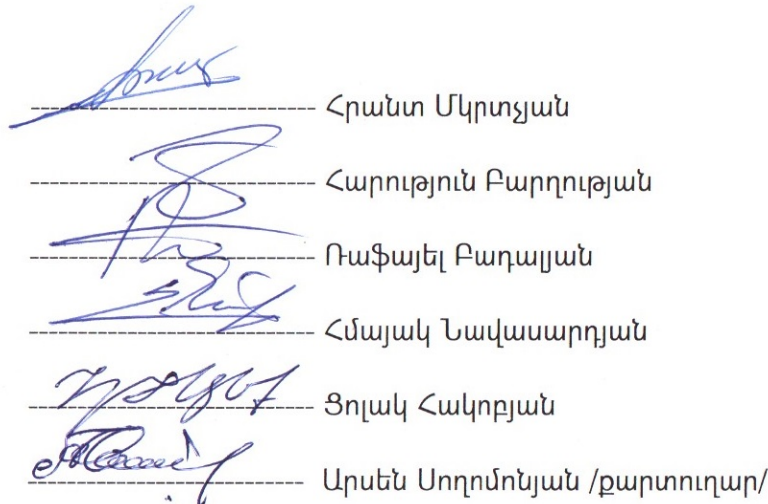 Հրանտ Մկրտչյան
Հարություն Բարղության
Ռաֆայել Բադալյան
Հմայակ Նավասարդյան
Ցոլակ Հակոբյան
Արսեն Սողոմոնյան /քարտուղար/